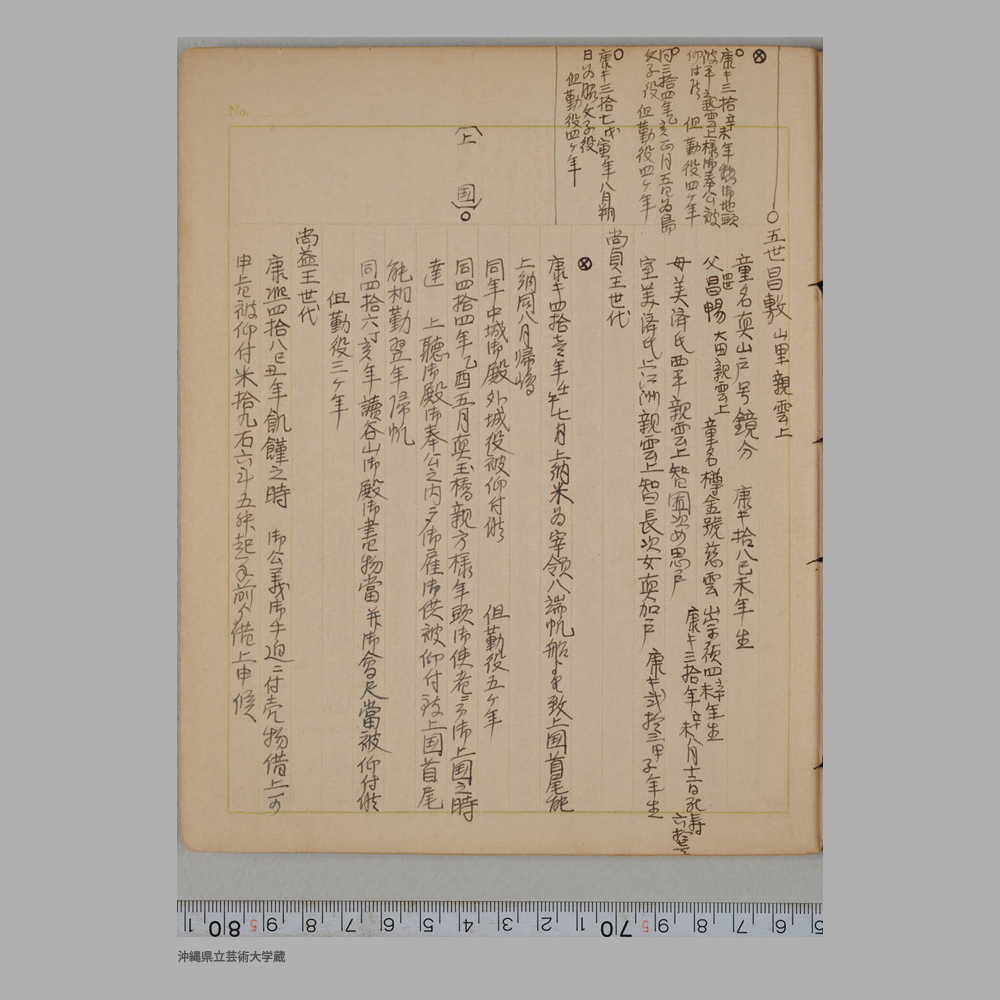 五世昌敷 山里親雲上
童名真山戸号鏡分 康キ拾八己未年生
父昌暢 大田親雲上 童名樽金號慈雲 崇禎四辛未年生
康キ三拾年辛未八月十二日死寿六拾一
母美済氏西平親雲上智囿次女思戸
室美済氏上江洲親雲上智長次女真加戸 康キ弐拾三甲子年生
尚貞王世代
康キ四拾壱年壬午七月上納米為宰領八端帆船ゟ致上国首尾能
上納同八月帰帆
同年中城御殿外城役被仰付候 但勤役五ケ年
同四拾四年乙酉五月真玉橋親方様年頭御使者ニ而御上国之時
達 上聴御殿御奉公之内ゟ御雇御供被仰付致上国首尾
能相勤翌年帰帆
同四拾六丁亥年讀谷山御殿御書物當并御會尺當被仰付候
但勤役三ケ年
尚益王世代
康熙四拾八己丑年飢饉之時 御公義御手迫ニ付売物借上可
申旨被仰付米拾九石六斗五舛起手前ゟ借上申候
康キ三拾辛未年
親雲上様御奉公被
仰付候 但勤役四ケ年
同三拾四年乙亥正月五日為嶋
女子役 但勤役四ケ年
康キ三拾七戊寅年八月朔
日為脇女子役
但勤役四ケ年
(上国)
No.
180 5 9 8 7 6 5 4 3 2 1 70 9 8 7 6 5
沖縄県立芸術大学蔵